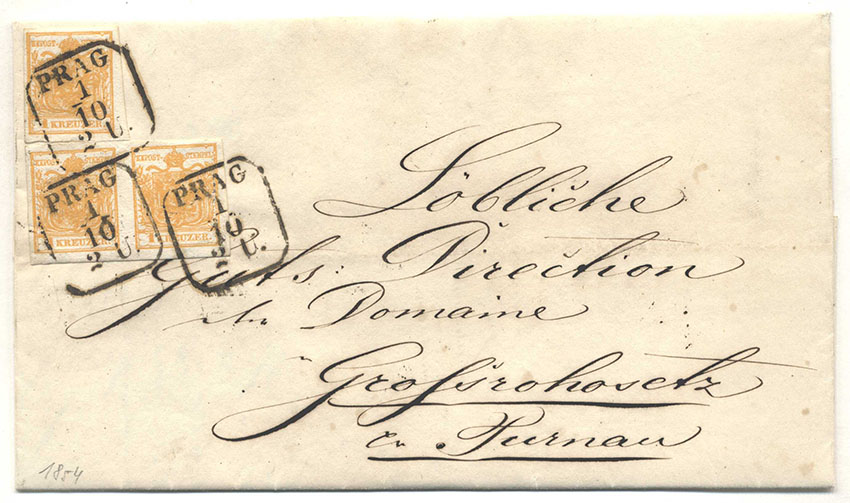 KREUZER
PRAG
1
10
2 U.
KREUZER
PRAG
1
10
2 U.
1 KREUZER
PRAG
1
10
2 U.
Löbliche
Guts: Direction
der Domaine
Grossrohosetz
Turnau
1854